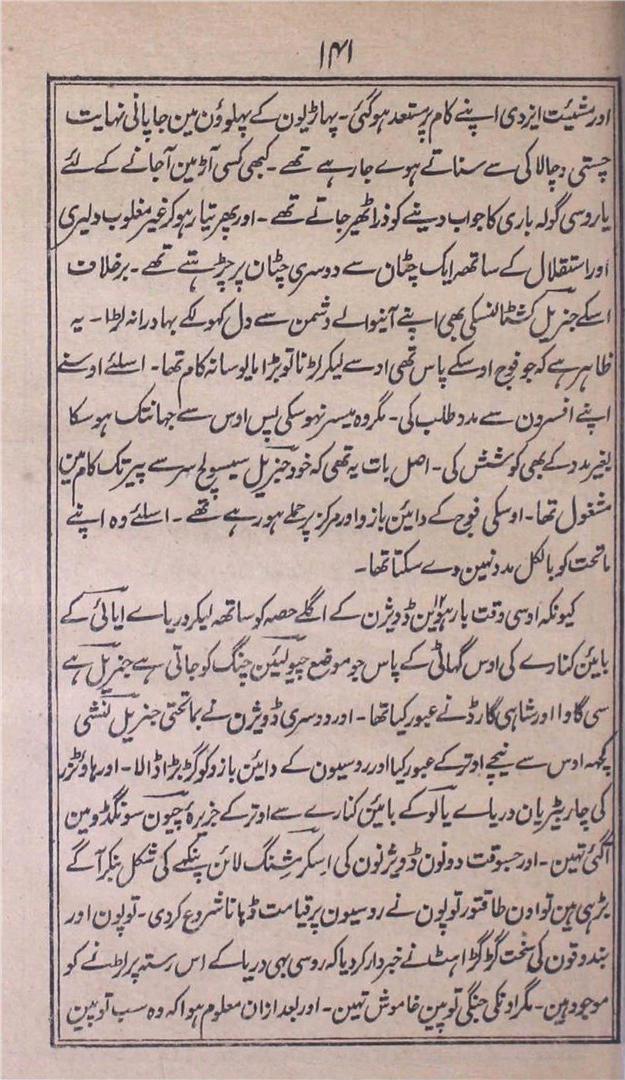 ۱۴۱
اور مشیئت ایزدی اپنے کام پر مستعد ہوگئی۔ پہاڑیون کے پہلوؤن مین جاپانی نہایت
چستی و چالاکی سے سناتے ہوے جارہے تھے۔ کبھی کسی آڑ مین آجانے کے لئے
یا روسی گولہ باری کا جواب دینے کو ذرا ٹھیر جاتے تھے۔ اور پھر تیار ہوکر غیر مغلوب دلیری
اور استقلال کے ساتھ ایک چٹان سے دوسری چٹان پر چڑہتے تھے۔ برخلاف
اسکے جنریل کشٹالنسکی بھی اپنے آنیوالے دشمن سے دل کہولکے بہادرانہ لڑا۔ یہ
ظاہر ہے کہ جو فوج اوسکے پاس تھی اوسے لیکر لڑنا تو بڑا مایوسانہ کام تھا۔ اسلئے اوسنے
اپنے افسرون سے مدد طلب کی۔ مگر وہ میسر نہوسکی پس اوس سے جہانتک ہوسکا
بغیر مدد کے بھی کوشش کی۔ اصل بات یہ تھی کہ خود جنریل سیسولچ سر سے پیر تک کام مین
مشغول تھا۔ اوسکی فوج کے داہئن بازو اور مرکز پر حملے ہورہے تھے۔ اسلئے وہ اپنے
ماتحت کو بالکل مدد نہین دے سکتا تھا۔
کیونکہ اوسی وقت بارہوین ۱۲ ڈویژن کے اگلے حصہ کو ساتھ لیکر دریاے ایائی کے
بائین کنارے کی اوس گھاٹی کے پاس جو موضع چیولئین چنگ کو جاتی ہے جنریل ہے
سی گاوا اور شاہی گارڈ نے عبور کیا تھا۔ اور دوسری ڈویژن نے بماتحتی جنریل نشی
کچھ اوس سے نیچے اوتر کے عبور کیا اور روسیون کے داہئن بازو کو گڑبڑا ڈالا۔ اور ہاوٹزر
کی چار بیٹریان دریاے یالو کے بائین کنارے سے اوتر کے جزیرۂ چیون سونگڈو مین
آگئی تہین۔ اور جسوقت دونون ڈویژنون کی اسکرمشنگ لائن پنکہے کی شکل بنکر آگے
بڑہی ہین تو اون طاقتور توپون نے روسیون پر قیامت ڈہانا شروع کردی۔ توپون اور
بندوقون کی سخت گڑگڑاہٹ نے خبردار کردیا کہ روسی بھی دریا کے اس رستہ پر لڑنے کو
موجود ہین۔ مگر اونکی جنگی توپین خاموش تہین۔ اور بعد ازان معلوم ہوا کہ وہ سب توپین